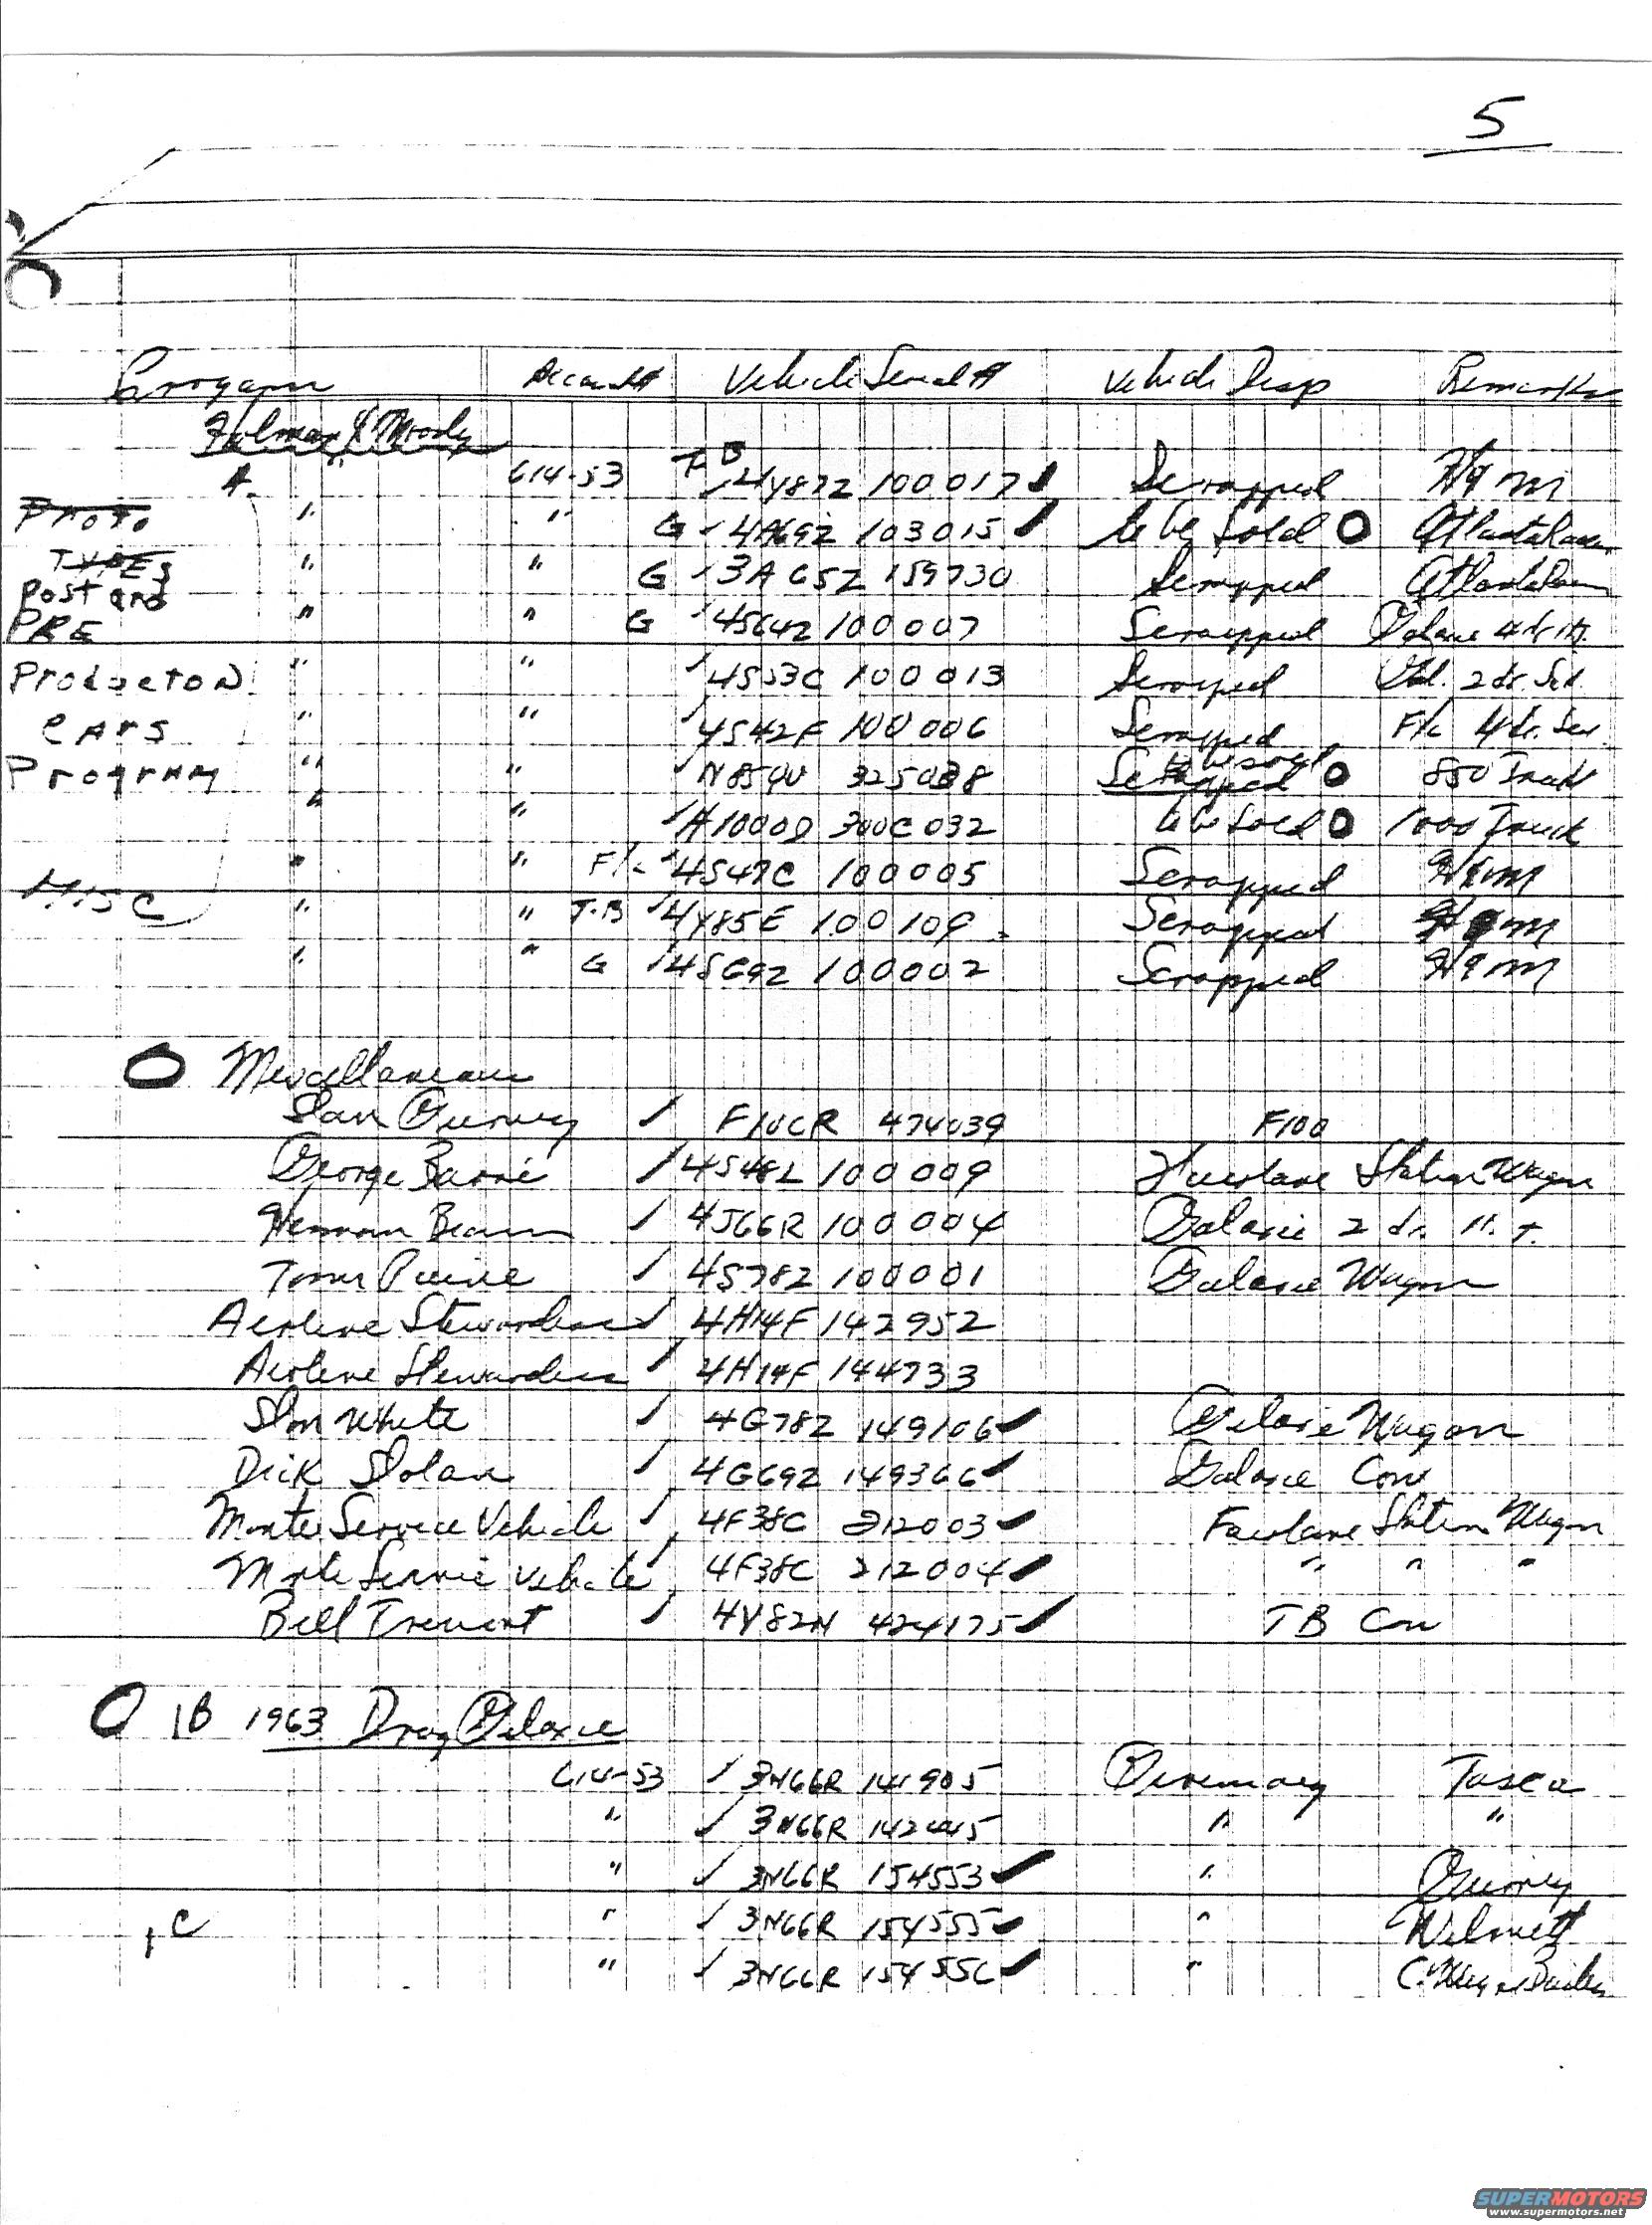 5
Program Account # Vehicle Serial # Vehicle Disp Remarks
Holman & Moody
A. " 614-53 T-B 4Y87Z 100017 Scrapped H&M
Proto " " G 4A69Z 103015 to be Sold O Atlanta
TYPES " " G 3A65Z 159730 Scrapped Atlanta
Post and
PRE " " G 4S64Z 100007 Scrapped Galaxie 4 dr. Ht.
Production " " 4S53C 100013 Scrapped Gal. 2 dr. Sed.
Cars " " 4S42F 100006 Scrapped F/L 4 dr. Sed.
to be sold
Program " " N85YU Scrapped O 850 Truck
" " 032 to be Sold O 1000 Truck
" " F/L 4S47C 100005 Scrapped H&M
Misc " " T.B 4Y85E 100109 Scrapped H&M
" " G 4S69Z 100002 Scrapped H&M
O Miscellaneous
Dan Gurney F10CR 474039 F100
George 4S48L 100009 Fairlane Station Wagon
Herman Beam 4J66R 100004 Galaxie 2 dr. H.T.
Tom 4S78Z 100001 Galaxie Wagon
Airline Stewardess 4H14F 142952
Airline Stewardess 4H14F 144733
White 4G78Z 149106 Galaxie Wagon
Dick Dolan 4G69Z 149366 Galaxie Conv
Monte Service Vehicle 4F38C 212003 Fairlane Station Wagon
Monte Service Vehicle 4F38C 212004 " " "
Bill 4Y82N 424175 TB Conv
O 1B 1963 Drag Galaxie
614-53 3N66R 141905 Giveaway Tasca
" 3N66R 142445 " "
" 3N66R 154553 " Gurney
1C " 3N66R 154555 "
" 3N66R 154556 "
SUPERMOTORS
www.supermotors.net